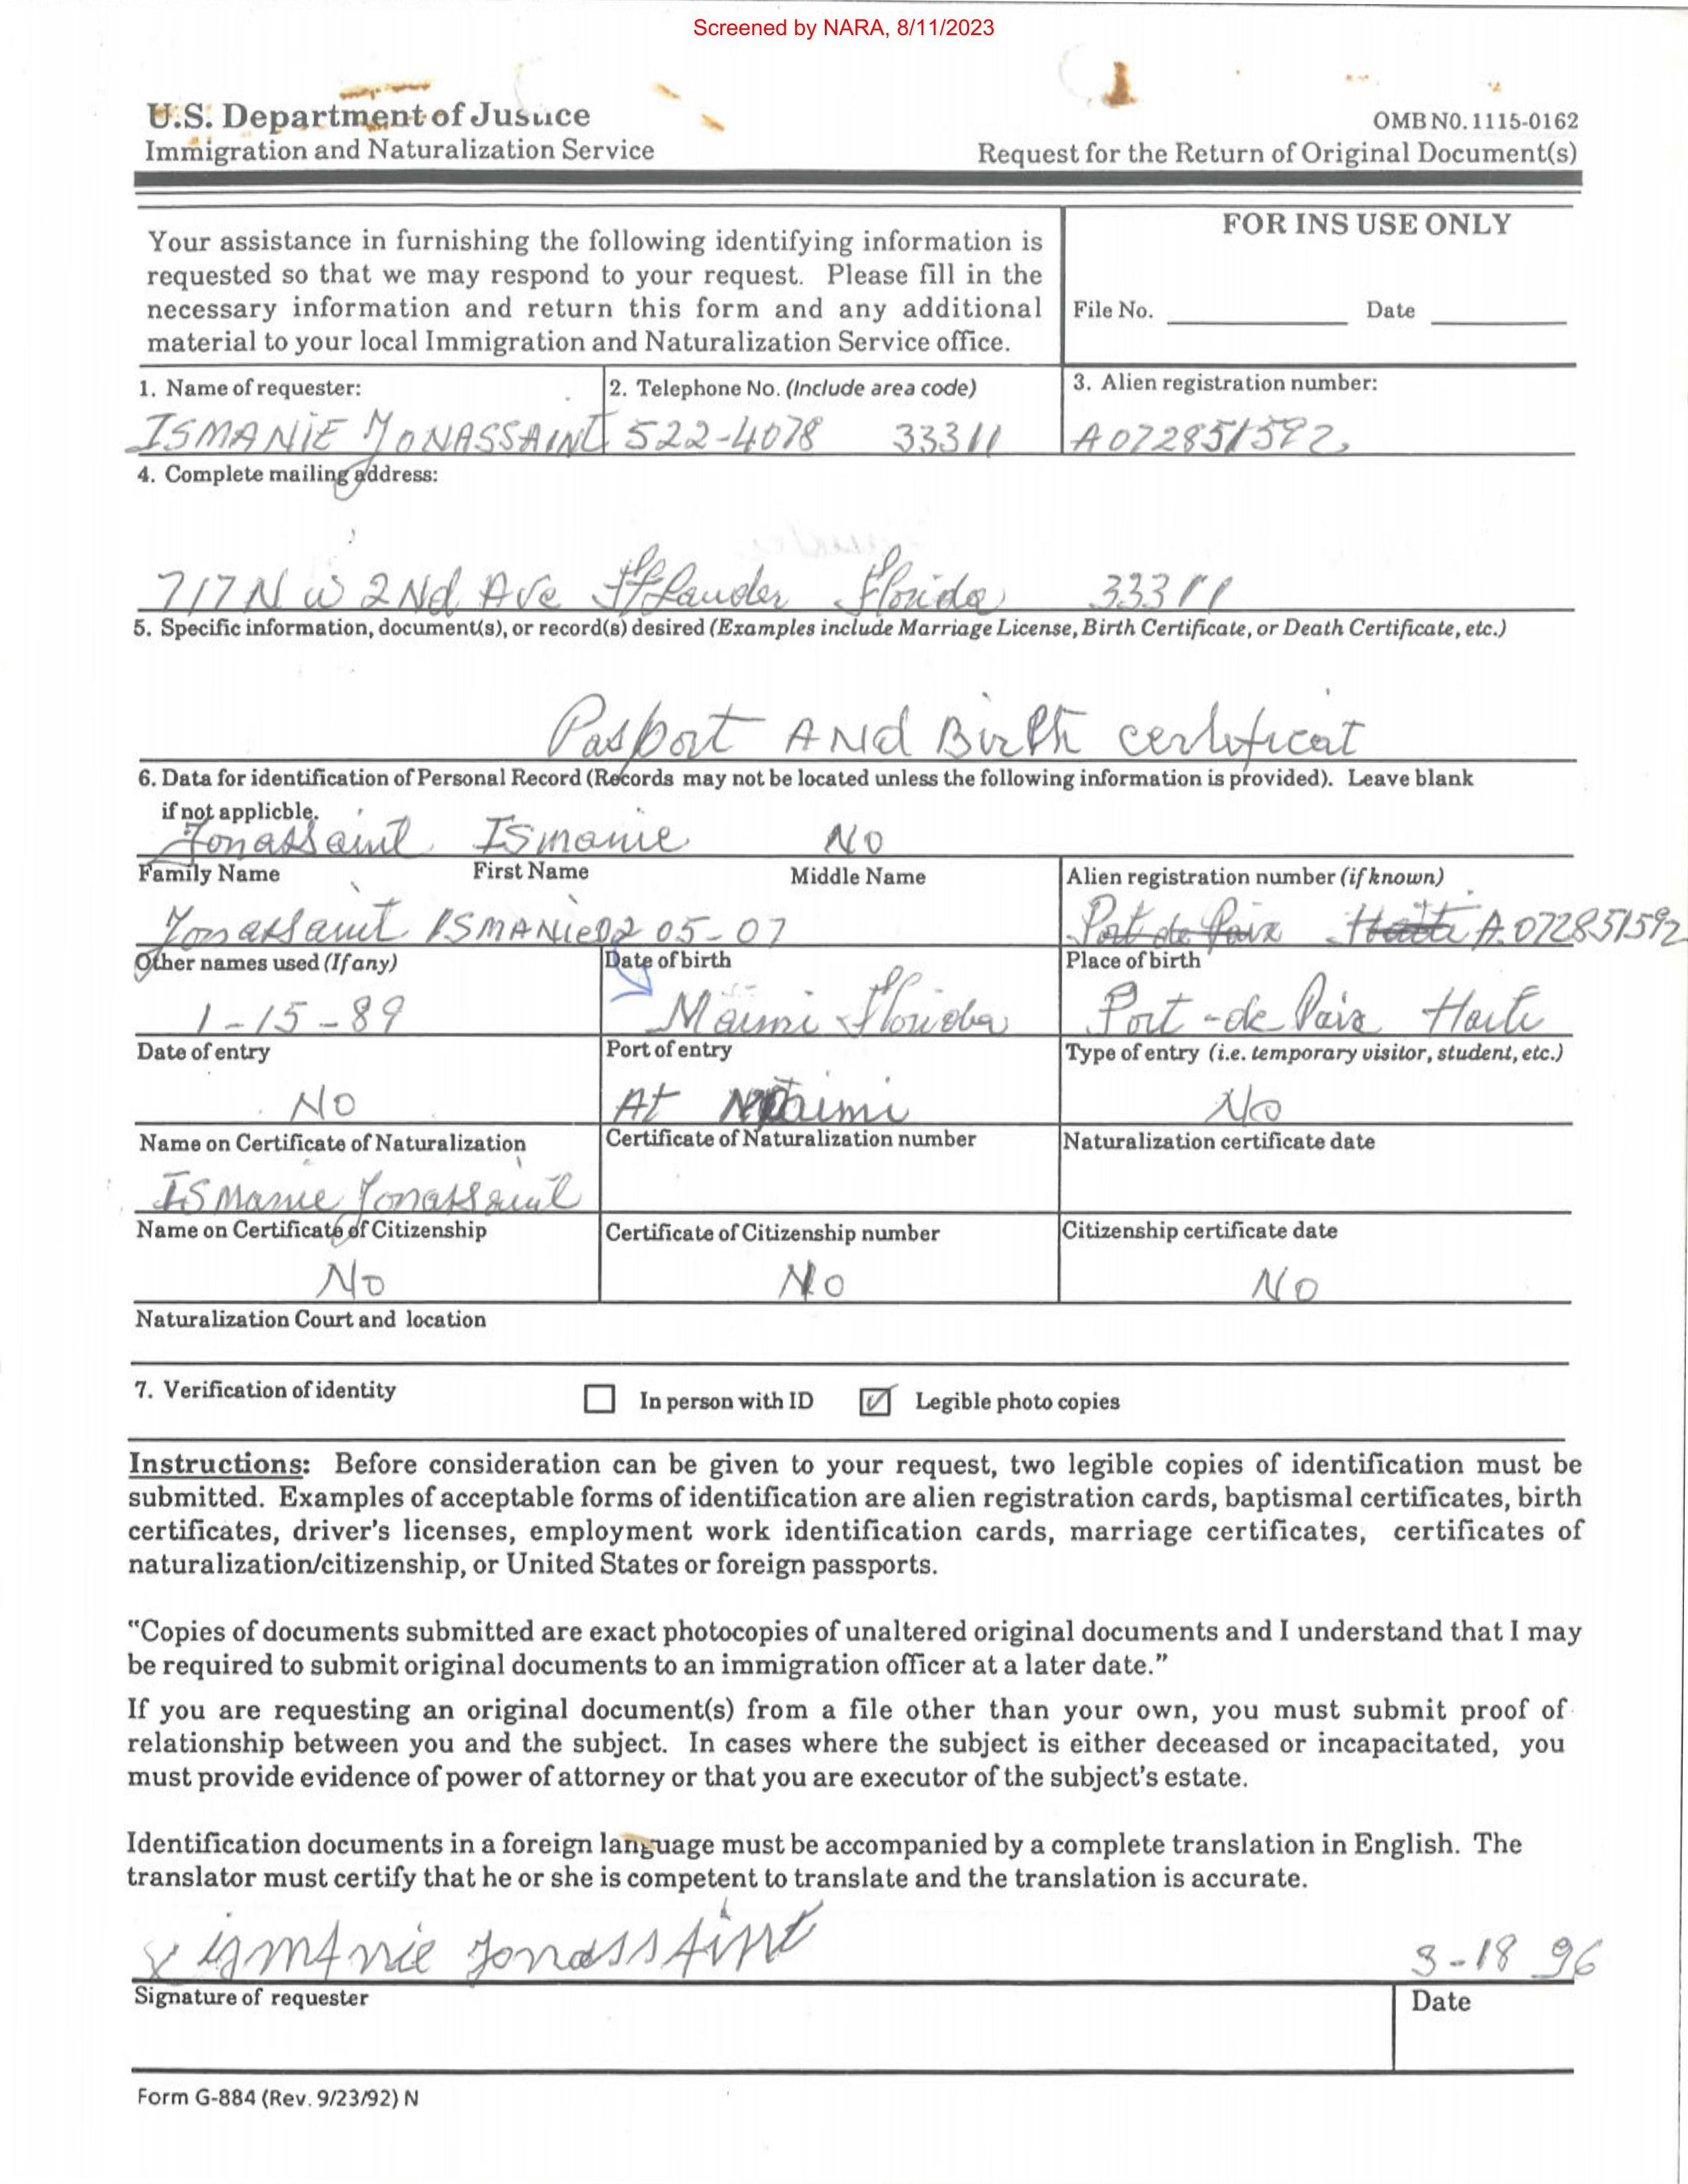 Screened by NARA, 8/11/2023
U.S. Department of Justice
OMB NO. 1115-0162
Immigration and Naturalization Service
Request for the Return of Original Document(s)
Your assistance in furnishing the following identifying information is
requested so that we may respond to your request. Please fill in the
necessary information and return this form and any additional
material to your local Immigration and Naturalization Service office.
FOR INS USE ONLY
File No. Date
1. Name of requester:
ISMANIE JONASSAINT
2. Telephone No. (Include area code)
522-4078 33311
3. Alien registration number:
A072851592
4. Complete mailing address:
717 N W 2Nd Ave Ft Lauder Florida 33311
5. Specific information, document(s), or record(s) desired (Examples include Marriage License, Birth Certificate, or Death Certificate, etc.)
Pasport ANd Birth certificat
6. Data for identification of Personal Record (Records may not be located unless the following information is provided). Leave blank
if not applicble.
Jonassaint Ismanie NO
Family Name First Name Middle Name
Alien registration number (if known)
Jonassaint ISMANIE 02 05-07
Port de Paix Haiti A072851592
Other names used (If any)
Date of birth
Place of birth
1-15-89
Maimi Florida
Port-de Paix Haiti
Date of entry
Port of entry
Type of entry (i.e. temporary visitor, student, etc.)
NO
At Maimi
No
Name on Certificate of Naturalization
Certificate of Naturalization number
Naturalization certificate date
ISmanie Jonassaint
Name on Certificate of Citizenship
Certificate of Citizenship number
Citizenship certificate date
No
No
No
Naturalization Court and location
7. Verification of identity In person with ID Legible photo copies
Instructions: Before consideration can be given to your request, two legible copies of identification must be
submitted. Examples of acceptable forms of identification are alien registration cards, baptismal certificates, birth
certificates, driver's licenses, employment work identification cards, marriage certificates, certificates of
naturalization/citizenship, or United States or foreign passports.
"Copies of documents submitted are exact photocopies of unaltered original documents and I understand that I may
be required to submit original documents to an immigration officer at a later date."
If you are requesting an original document(s) from a file other than your own, you must submit proof of
relationship between you and the subject. In cases where the subject is either deceased or incapacitated, you
must provide evidence of power of attorney or that you are executor of the subject's estate.
Identification documents in a foreign language must be accompanied by a complete translation in English. The
translator must certify that he or she is competent to translate and the translation is accurate.
x ismAnie jonassAint 3-18 96
Signature of requester
Date
Form G-884 (Rev. 9/23/92) N